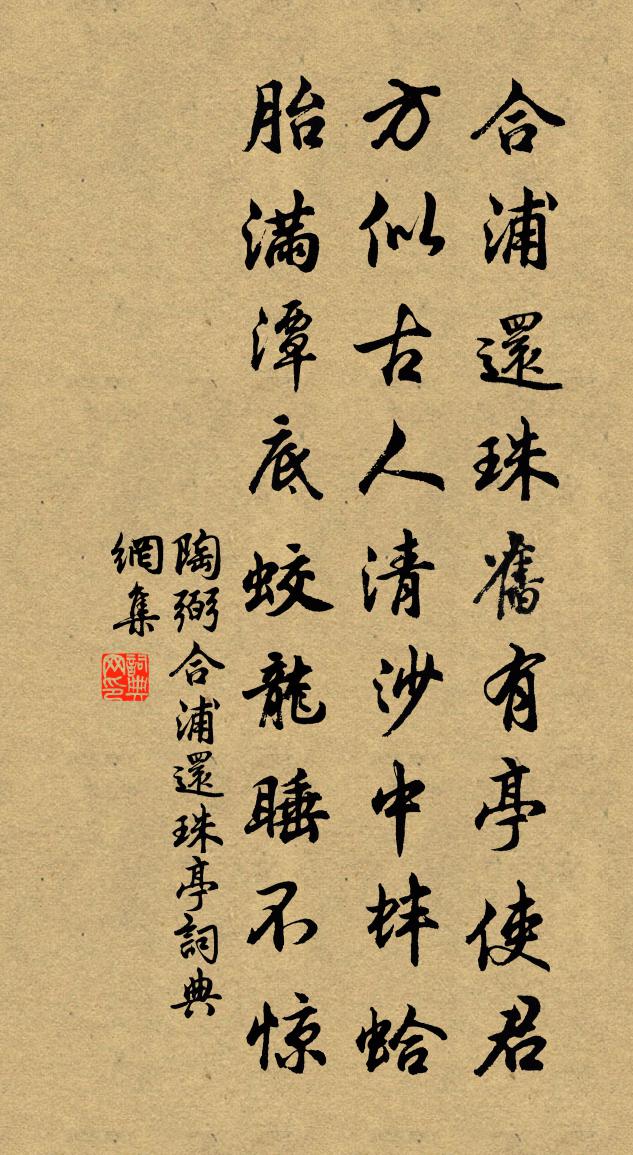 合浦還珠舊有亭使君
方似古人清沙中蚌蛤
胎满潭底蛟龍睡不惊
陶弼合浦還珠亭詞典
網集
詞典网印